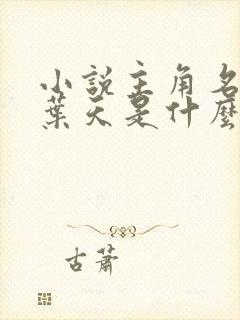 小說主角名
葉天是什麼
古蕭